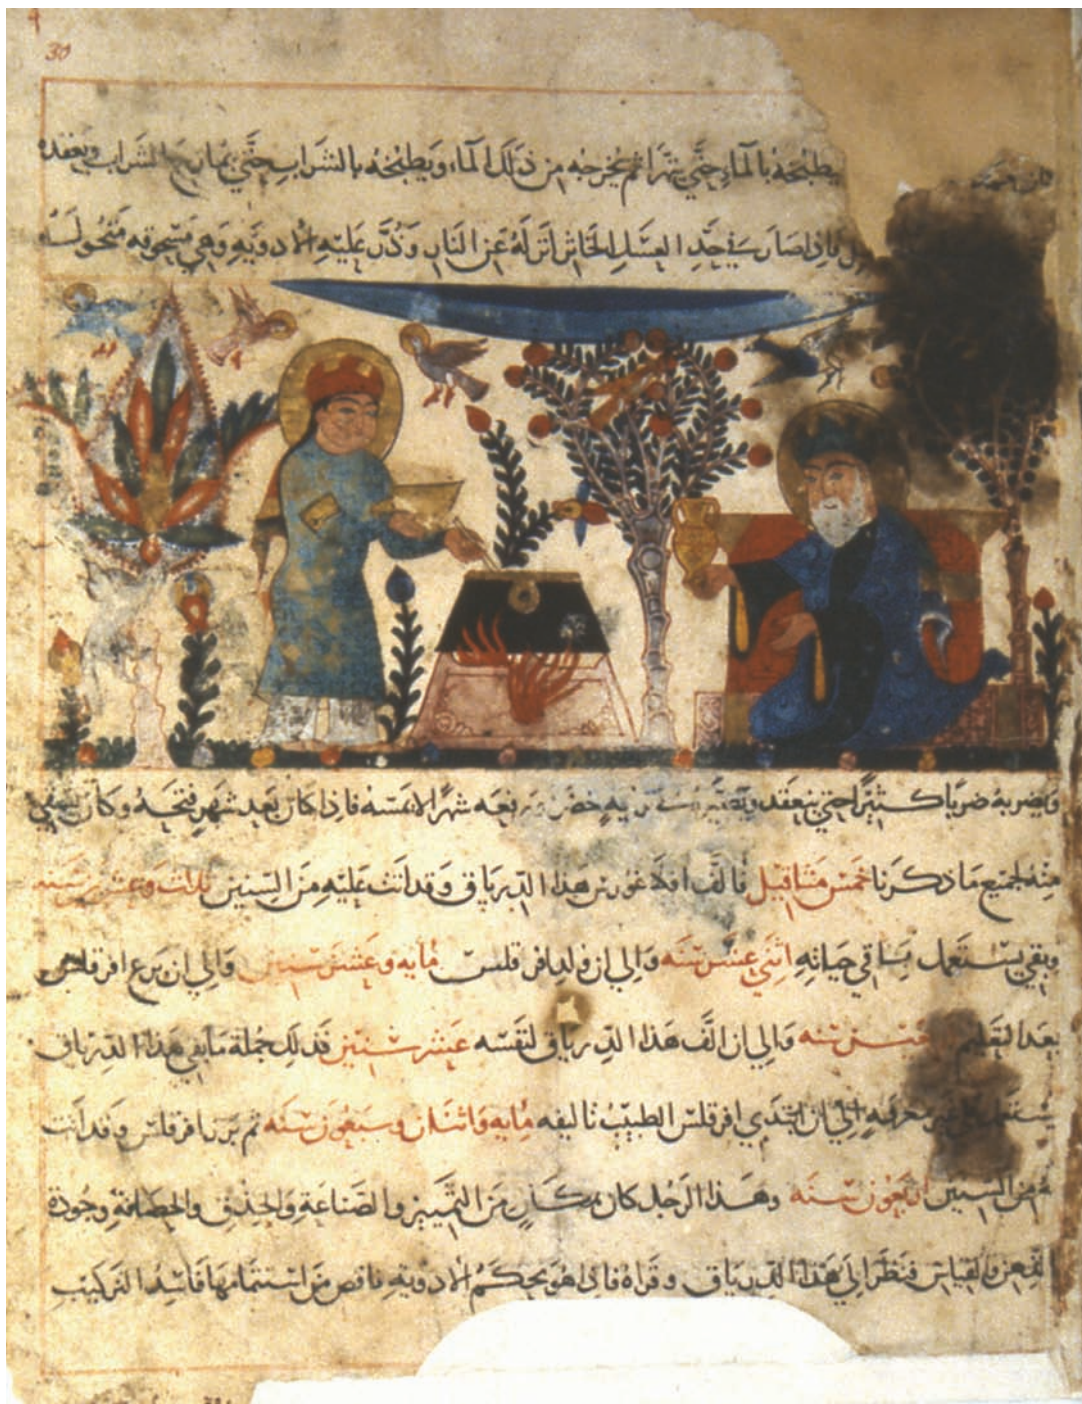 30
يطبخه بالماء حتي يتهرا ثم يخرجه من ذلك الماء ويطبخه بالشراب حتي الشراب ويعقده
فاذا صار في حد العسل الخاثر انزله عن النار وذر عليه الادويه وهي مسحوقه منخوله
ويضربه ضربا كثيرا حتي ينعقد ويصيره في خضر رفعه شهرا لا تمسه فاذا كان بعد شهر فتحه وكان يسقي
منه لجميع ما ذكرنا خمس مثاقيل فالف افلاغورس هذا الدرياق وقد اتت عليه من السنين ثلاث وعشرين سنه
وبقي يستعمل باقي حياته اثني عشر سنه والي ان ولد افرقلس مايه وعشر سنين والي ان برع افرقلس
بعد التعليم سنه والي ان الف هذا الدرياق لنفسه عشر سنين فذلك جملة ما بقي هذا الدرياق
يستعمل معرفه الي ان ابتدي افرقلس الطبيب تاليفه مايه واثنان وسبعون سنه ثم برز افرقلس وقد اتت
من السنين اربعون سنه وهذا الرجل كان بمكان من التمييز والصناعة والحذق والحصافة وجودة
الذهن والقياس فنظر الي هذا الدرياق وقراه فاذا هو محكم الادويه ناقص من استتمامها فاسد التركيب